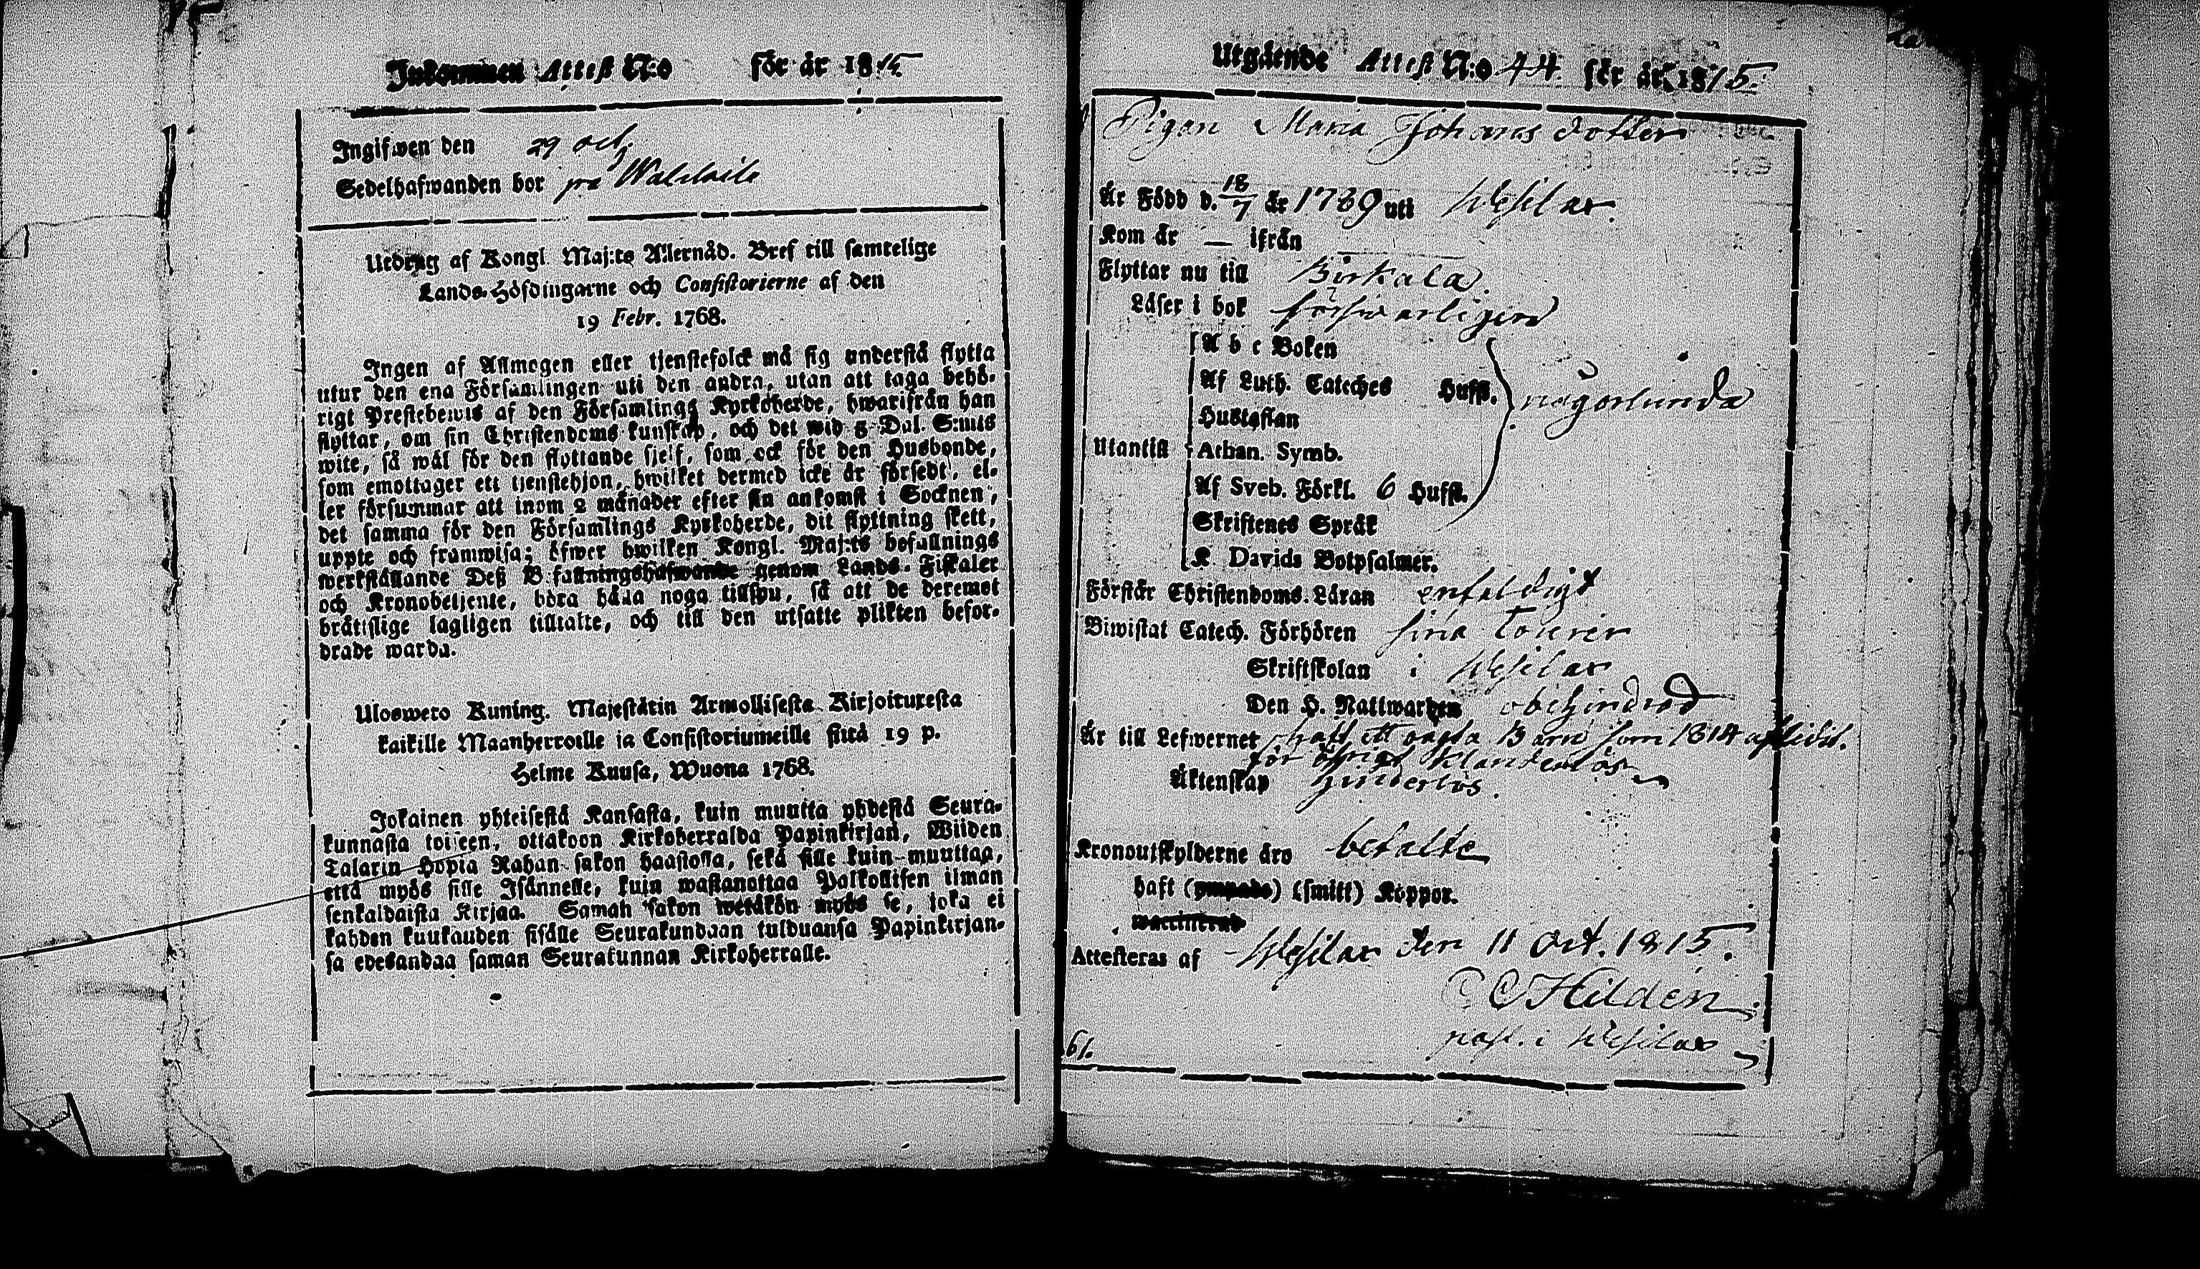 Inkommen Attest N:o för år 1815.
Ingifwen den 29 oct
Sedelhafwanden bor på
Utdrag af Kongl. Maj:ts Allernåd. Bref till samtelige
Lands-Höfdingarne och Consistorierne af den
19 Febr. 1768.
Ingen af Allmogen eller tjenstefolck må sig understå flytta
utur den ena Församlingen uti den andra, utan att taga behö-
rigt Prestebewis af den Församlings Kyrkoherde, hwarifrån han
flyttar, om sin Christendoms kunskap, och det wid 5 Dal. S:mts
wite, så wäl för den flyttande sjelf, som ock för den Husbonde,
som emottager ett tjenstehjon, hwilket dermed icke är försedt, el-
ler försummar att inom 2 månader efter sin ankomst i Socknen,
det samma för den Församlings Kyrkoherde, dit flyttning skett,
uppte och framwisa; öfwer hwilken Kongl. Maj:ts befallnings
werkställande Deß B.fallningshafwande genom Lands-Fiskaler
och Kronobetjente, böra hålla noga tillsyn, så att de deremot
bråttslige lagligen tilltalte, och till den utsatte plikten befor-
drade warda.
Uloswero Kuning. Majestätin Armollisesta Kirjoituresta
kaikille Maanherroille ja Consistoriumeille siitä 19 p.
Helme Kuusa, Wuona 1768.
Jokainen yhteisestä Kansasta, kuin muutta yhdestä Seura-
kunnasta toiseen, ottakoon Kirkoherralda Papinkirjan, Wiiden
Talarin Hopia Rahan sakon haastolla, sekä sille kuin muuttaa,
että myös sille Isännelle, kuin wastanottaa Palkollisen ilman
senkaldaista Kirjaa. Saman sakon wetäkön myös se, joka ei
kahden kuukauden sisälle Seurakundaan tulduansa Papinkirjan-
sa edesandaa saman Seurakunnan Kirkoherralle.
Utgående Attest N:o 44 för år 1815.
Pigan Maria Johans dotter
Är Född d. 18/7 år 1789 uti Wesilax.
Kom år — ifrån
Flyttar nu till Birkala.
Läser i bok förswarligen
A b c Boken
Af Luth. Cateches Hufst. någorlunda
Hustaflan
Utantill Athan. Symb.
Af Sveb. Förkl. 6 Hufst.
Skriftenes Språk
K. Davids Botpsalmer.
Förstår Christendoms-Läran enfaldigt
Biwistat Catech. Förhören sina Tourer
Skriftskolan i Wesilax
Den H. Nattwarden obehindrad
Är till Lefwernet haft ett oägta Barn som 1814 aflidit.
för öfrigt klanderlös
Äktenskap hinderlös.
Kronoutskylderne äro betalte
haft (ympade) (smitt) Koppor.
vaccinerad
Attesteras af Wesilax den 11 Oct. 1815.
C C Hildén
past. i Wesilax
61.